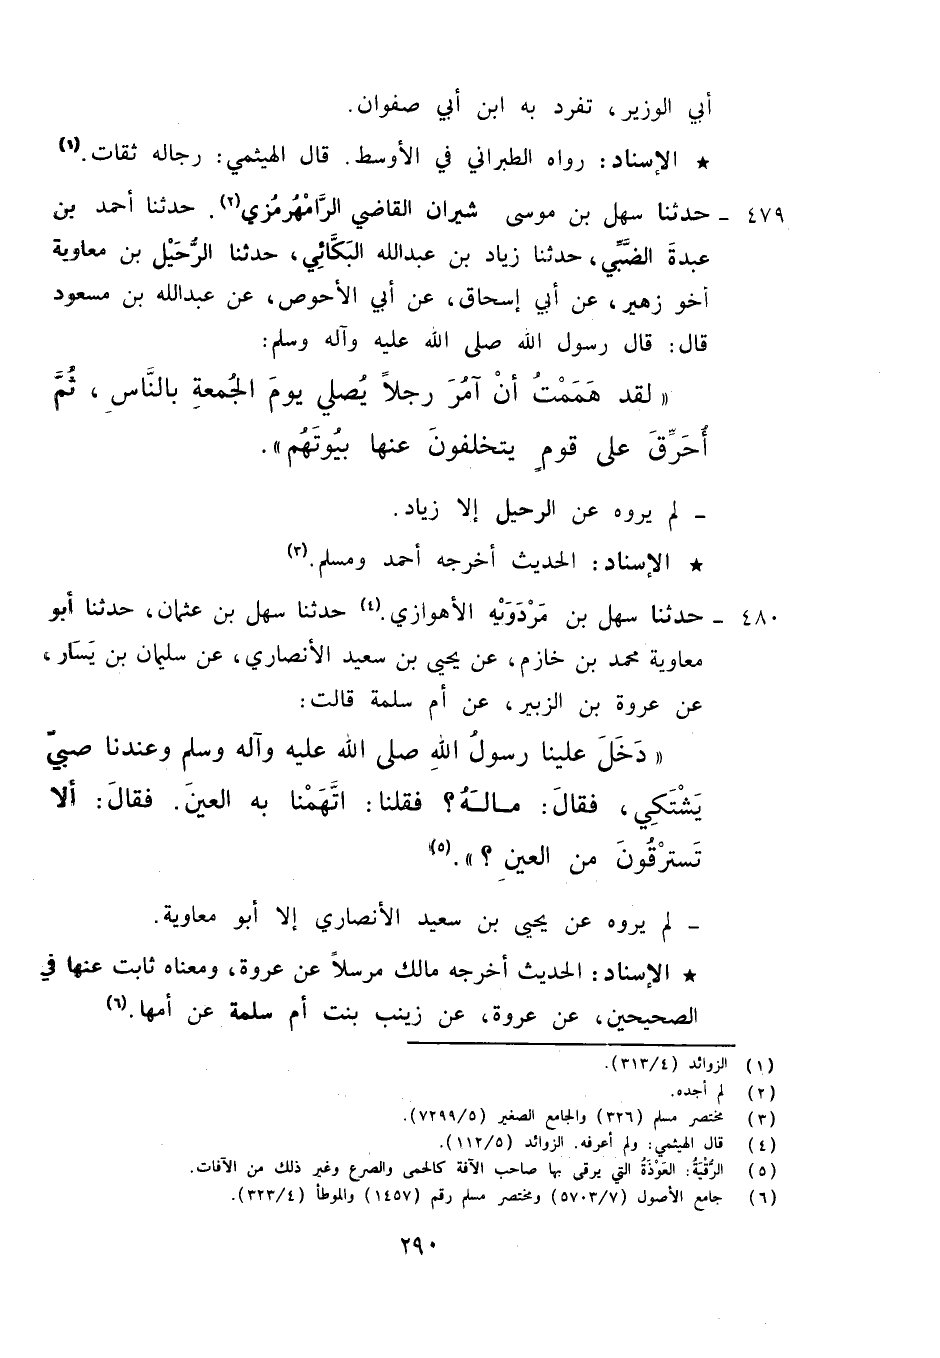 أبي الوزير، تفرد به ابن أبي صفوان.
★ الإسناد: رواه الطبراني في الأوسط. قال الهيثمي: رجاله ثقات.(١)
٤٧٩ - حدثنا سهل بن موسى شيران القاضي الرَّامْهُرمُزي(٢). حدثنا أحمد بن
عبدةَ الضَّبِّي، حدثنا زياد بن عبدالله البَكَّائِي، حدثنا الرُّحَيْل بن معاوية
أخو زهير، عن أبي إسحاق، عن أبي الأحوص، عن عبدالله بن مسعود
قال: قال رسول الله صلى الله عليه وآله وسلم:
« لقد هَمَمْتُ أنْ آمُرَ رجلاً يُصلي يومَ الجُمعةِ بالنَّاسِ، ثُمَّ
أُحَرِّقَ على قومٍ يتخلفونَ عنها بيُوتَهُم».
- لم يروه عن الرحيل إلا زياد.
★ الإسناد: الحديث أخرجه أحمد ومسلم.(٣)
٤٨٠ - حدثنا سهل بن مَرْدَوَيْه الأهوازي.(٤) حدثنا سهل بن عثمان، حدثنا أبو
معاوية محمد بن خازم، عن يحيى بن سعيد الأنصاري، عن سليمان بن يَسَار،
عن عروة بن الزبير، عن أم سلمة قالت:
« دَخَلَ علينا رسولُ اللهِ صلى الله عليه وآله وسلم وعندنا صبيّ
يَشْتَكِي، فقالَ: مـالـهُ؟ فقلنا: اتَّهَمْنا به العينَ. فقالَ: ألا
تَسترْقُونَ من العينِ ؟».(٥)
- لم يروه عن يحيى بن سعيد الأنصاري إلا أبو معاوية.
★ الإسناد: الحديث أخرجه مالك مرسلاً عن عروة، ومعناه ثابت عنها في
الصحيحين، عن عروة، عن زينب بنت أم سلمة عن أمها.(٦)
(١) الزوائد (٣١٣/٤).
(٢) لم أجده.
(٣) مختصر مسلم (٣٢٦) والجامع الصغير (٧٢٩٩/٥).
(٤) قال الهيثمي: ولم أعرفه. الزوائد (١١٢/٥).
(٥) الرُّقْيَةُ: العَوْذَةُ التي يرقى بها صاحب الآفة كالحمى والصرع وغير ذلك من الآفات.
(٦) جامع الأصول (٥٧٠٣/٧) ومختصر مسلم رقم (١٤٥٧) والموطأ (٣٢٣/٤).
٢٩٠